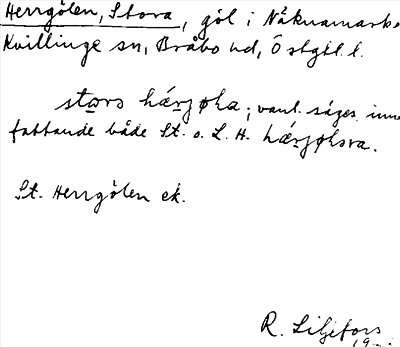 Herrgölen, Stora, göl i Nåknamarks
Kvillinge sn, Bråbo hd, Östgtl. l.
stɷrs hǽrjøla; vanl. säges inne
fattande både St. o. L. H. hærjølsra.
St. Herrgölen ek.
R. Liljefors